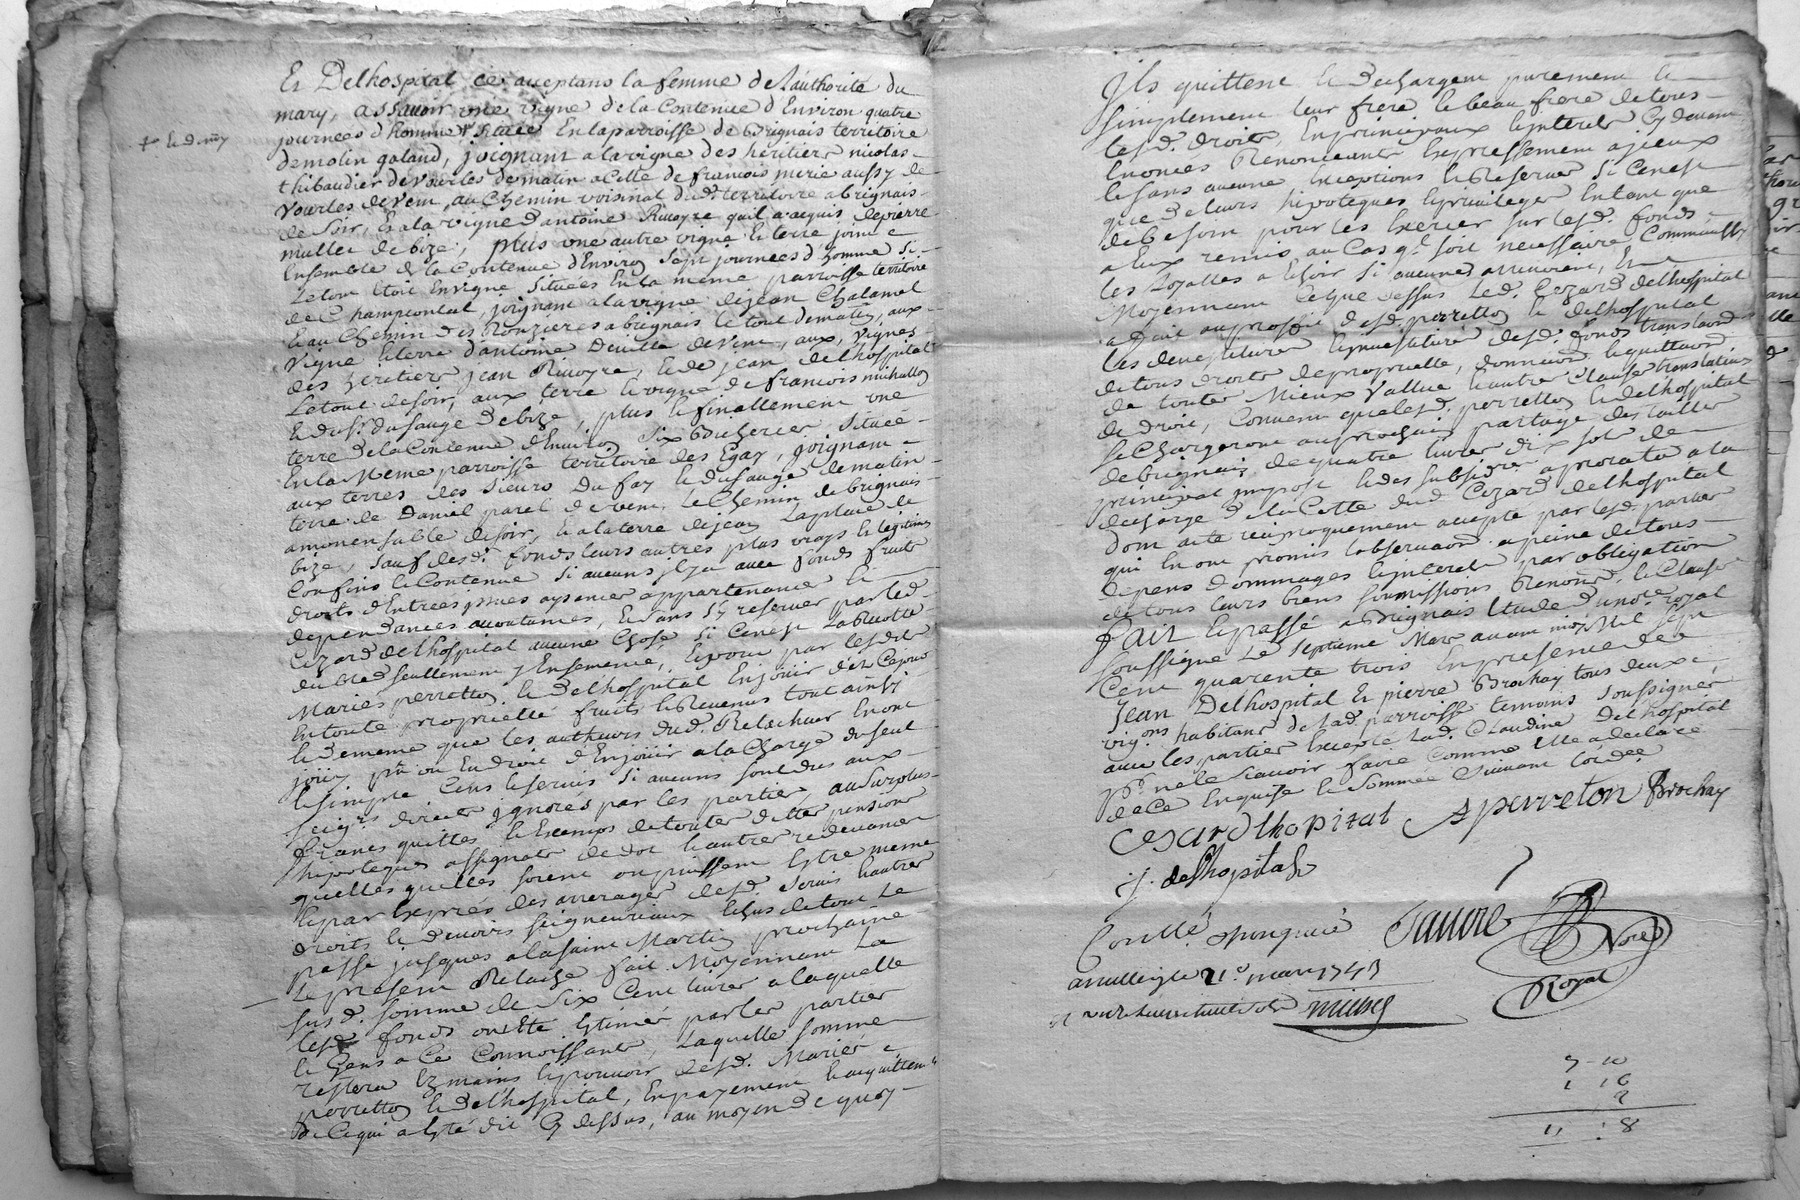 Et Delhospital ce aceptans la femme de l'authorité du
mary, assavoir une vigne de la Contenue d'Environ quatre
journees d'homme Située En la parroisse de Brignais territoire
+ et demy
de molin galand, joignant a la vigne des héritiers nicolas
thibaudier de vourles de matin a Celle de francois merie aussy de
vourles de vent, au Chemin voisinal dud. territoire a brignais
de soir, et a la vigne d'antoine Rivoyre quil a acquis de pierre
mullet de bize, plus une autre vigne et terre joint
Ensemble de la Contenue d'Environ sept journees d'homme si
Le tout Etoit En vigne Situées En la meme parroisse territoire
de Champcontal, joignant a la vigne de jean Chalamel
et au Chemin des Ronzieres a brignais le tout de matin, aux
vigne et terre d'antoine de vent, aux vignes
des héritiers jean Rivoyre, et de jean delhospital
Le tout de soir, aux terre et vigne de francois michallon
et du sr. dusauge de bize, plus et finallement une
terre de la Contenue d'Environ Six Bicherées, Située
En la Meme parroisse territoire des Egax, joignant
aux terres des Sieurs Du fay et dusauge de matin
terre de Daniel parel de vent, le Chemin de brignais
a de soir, et a la terre de jean Laplace de
bize, sauf desd. fonds leurs autres plus vrays et legitimes
Confins et Contenue Si aucuns il y a avec fonds fruits
droits d'Entrées issues aysances appartenance et
dependances acoutumées, et sans s'y reserver par led.
Cezard delhospital aucune Chose, Si Cenest La Recolte
du bled seullement y Ensemencé, et pour par lesdits
Mariés perretton et delhospital En jouir des Ce jour
En toute proprietté fruits et Revenus tout ainsi
et de meme que les autheurs dud. Relacheur En ont
joüy pû ou Eu droit d'En joüir a la Charge du seul
et simple Cens et servis Si aucuns sont dus aux
seigrs. directs ignorés par les parties, au surplus
francs quittes et Exemps de toutes dettes pensions
hipoteques assignats de dot et autres redevances
quelles quelles soient ou puissent Estre meme
et par Exprés des arrerages desd. servis et autres
droits et devoirs seigneuriaux Echus de tout le
passé jusques a la saint Martin prochaine
Le present Relache fait Moyennant La
susd. somme de Six Cent livres a laquelle
lesd. fonds ont Eté Estimés par les parties
et Gens a Ce Connoissants, Laquelle somme
restera Ez mains et pouvoir desd. Mariés
perretton et delhospital, En payement et acquittement
de Ce qui a Eté dit Cy dessus, au moyen de quoy
Ils quittent et dechargent purement et
simplement leur frere et beau frere de tous
lesd. droits, En principaux et interets Cy devant
Enoncés Renonceants Expressement a jceux
et sans aucune Exceptions et Reserves Si Cenest
que de leurs hipoteques et privileges En tant que
de besoin pour les Exercer sur lesd. fonds
a Eux remis au Cas ql. soit necessaire,
les Loyalles a Echoir Si aucunes arrivoient, Et
Moyennant Ceque dessus Led. Cezard delhospital
a fait au proffit desd. perretton et delhospital
les devestitures et investitures desd. fonds translaon
de tous droits de proprietté, donnaon et quittaon
de toutes Mieux Vallue et autres Clauses translatives
de droit, Convenu que lesd. perretton et delhospital
se Chargeront au prochain partage des tailles
de brignais, de quatre livres dix sols de
principal impost et des subsides a prorata a la
decharge de la Cotte dud. Cezard delhospital
dont acte reciproquement accepté par lesd. parties
qui En ont promis l'observaon a peine de tous
depens dommages et interets par obligation
de tous leurs biens soumissions Renonc. et Clauses
fait et passé a Brignais Etude d'u nore. royal
soussigné Le Septieme Mars avant midy Mil sept
Cent quarente trois En presence de
Jean Delhospital Et pierre Brochay tous deux
vigons. habitans de lad. parroisse temoins soussignés
avec les parties Excepté lad. Claudine Delhospital
pr. ne le scavoir faire Comme Elle a declaré
de Ce Enquise et Sommée Suivant l'ordce.
Cesar dlhopital Aperreton Brochay
j. delhopital
Conllé. Fauvre Nore
Royal
le 21e mars 1743
7 - 10
1 16
2
11 : 8